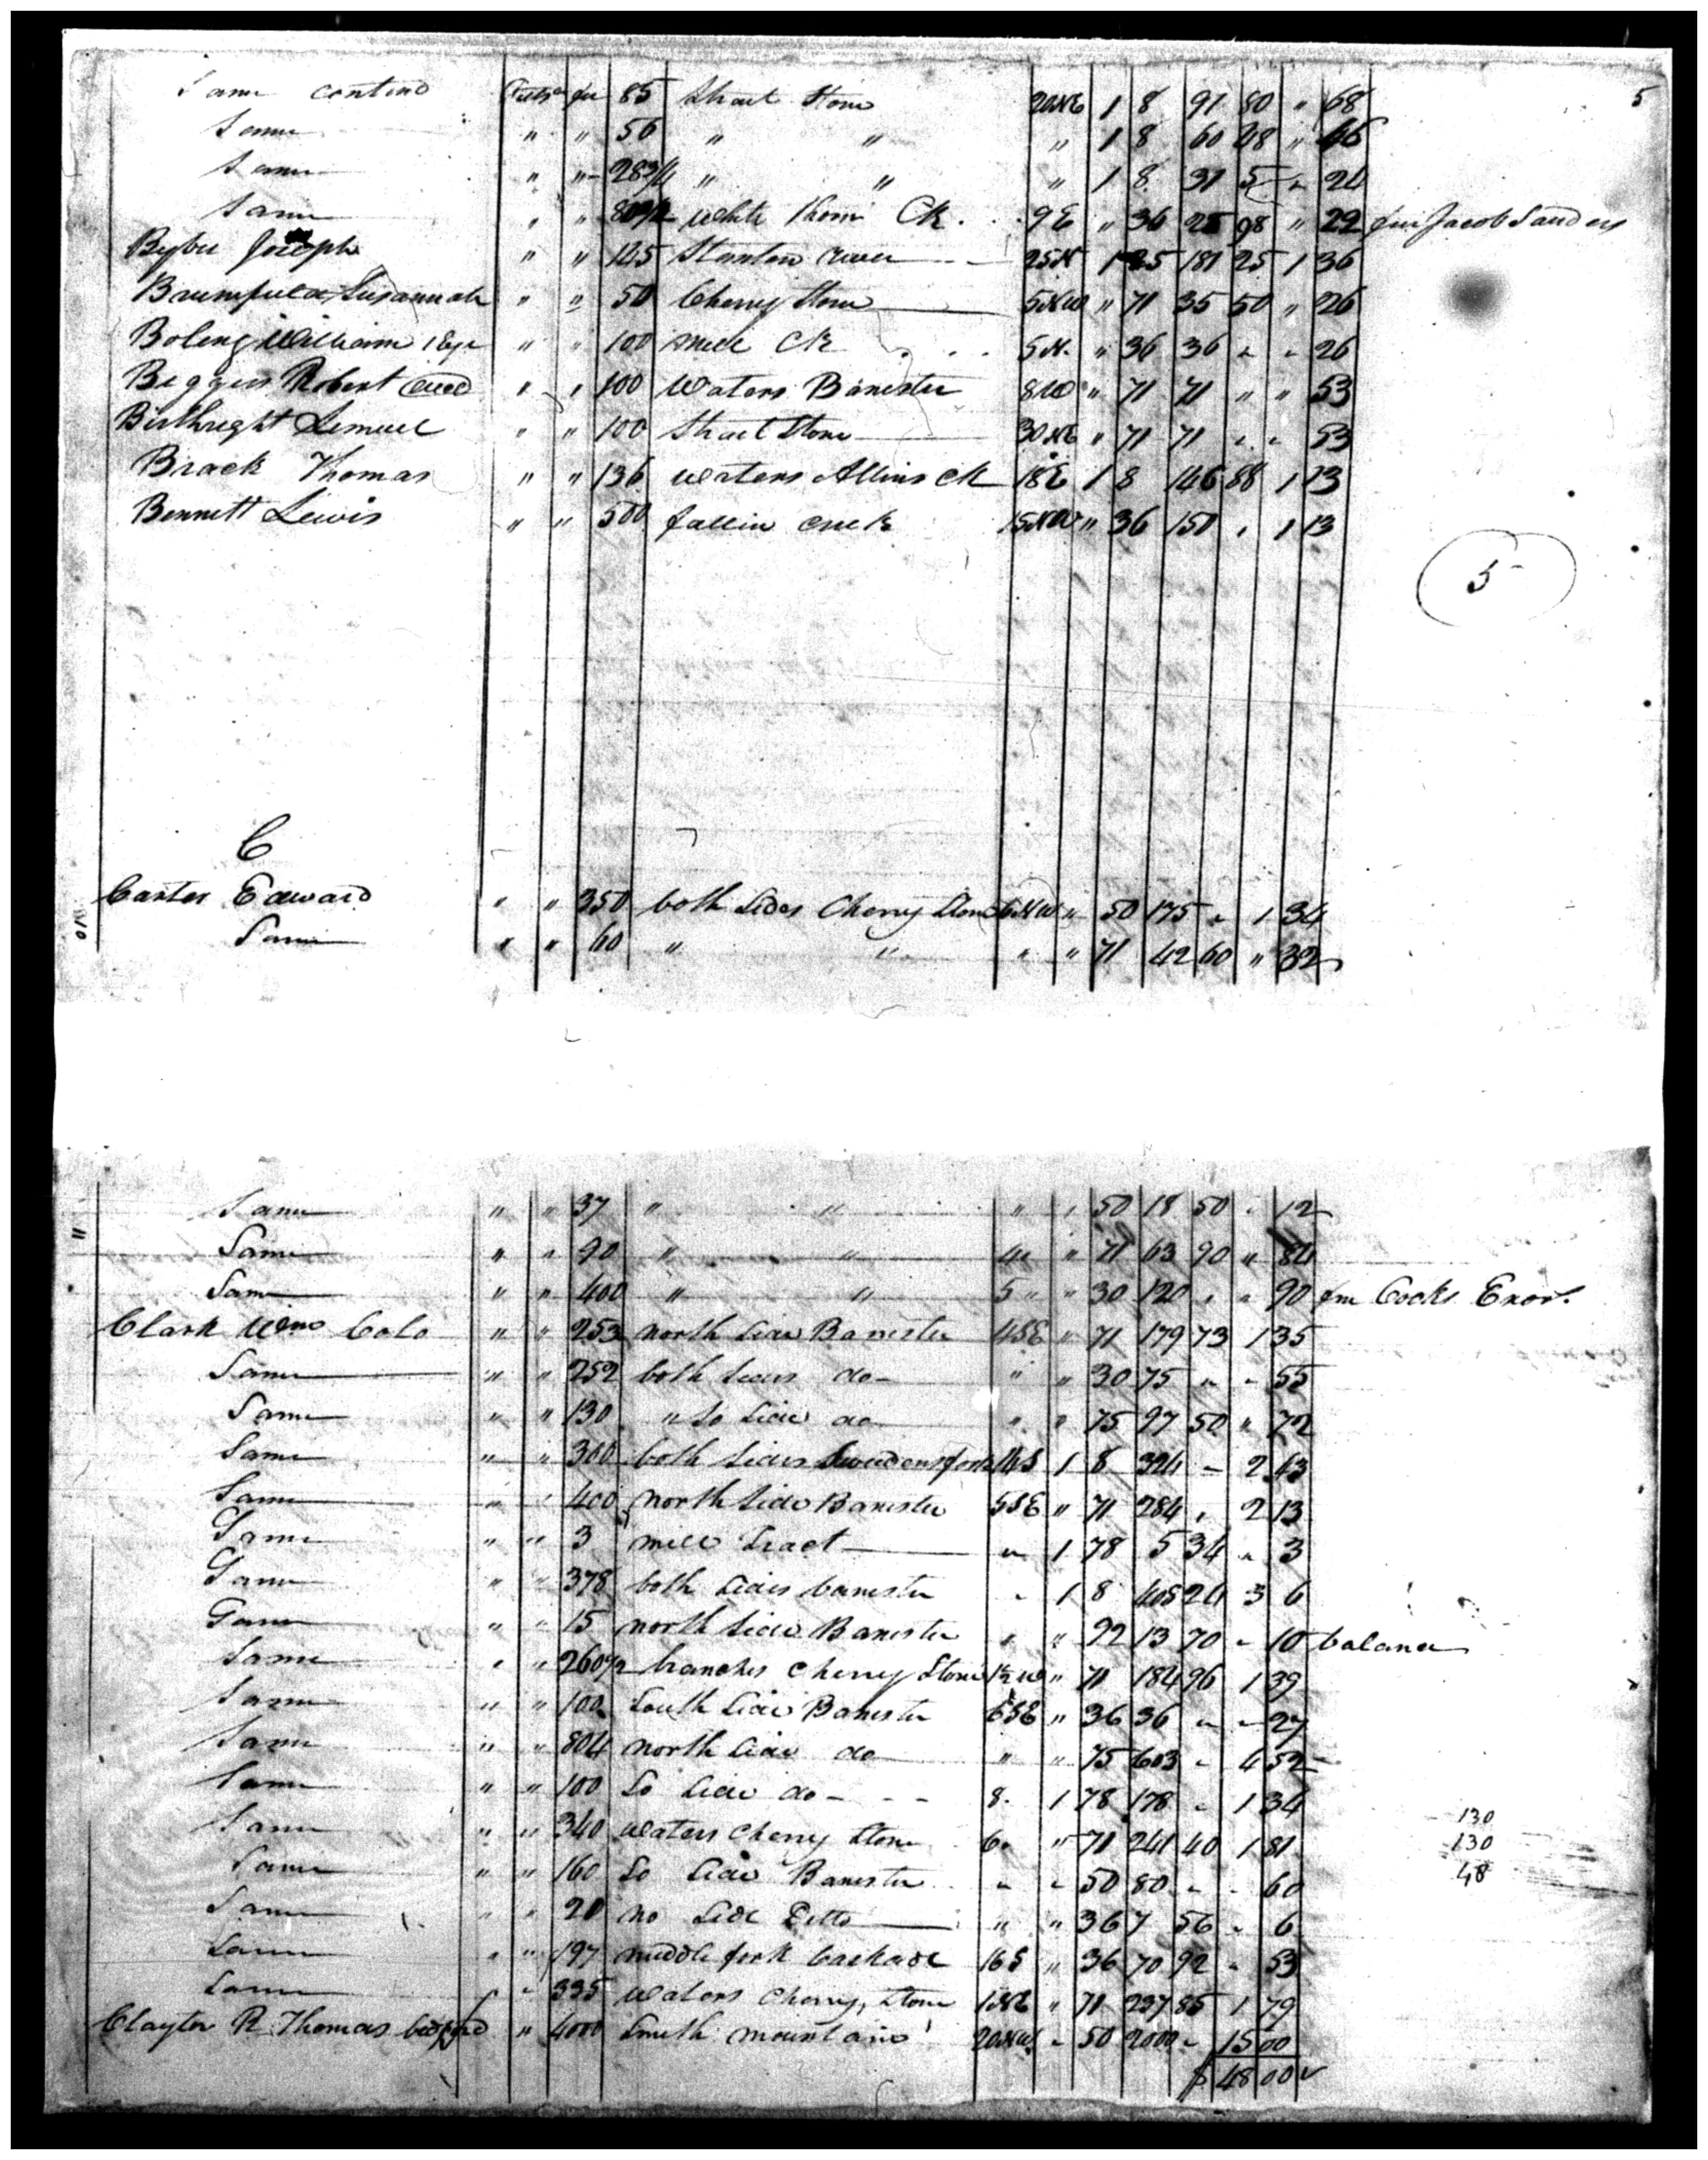 5
Same contind Pittsa fee 85 Strait Stone 20NE 1 8 91 80 " 68
Same " " 56 " " " 1 8 60 48 " 46
Same " " 28 3/4 " " " 1 8 31 5 " 24
Same " " 80 1/2 White thorn Ck. 9E " 36 28 98 " 22 fm Jacob Sanders
Bybee Joseph " " 145 Stanton river 25N 1 25 181 25 1 36
Susannah " " 50 Cherry Stone 5NW " 71 35 50 " 26
Boling William " " 100 mill Ck 5N. " 36 36 " " 26
Biggers Robert " " 100 Waters Banister 8W " 71 71 " " 53
Birthright Lemuel " " 100 Strait Stone 30NE " 71 71 " " 53
Brack Thomas " " 136 waters Allins Ck 18E 1 8 146 88 1 13
Bennett Lewis " " 500 fallin creek 15NW " 36 150 " 1 13
5
C
Carter Edward " " 350 both sides Cherry Stone 6NW " 50 175 " 1 34
Same " " 60 " " " " 71 42 60 " 32
Same " " 37 " " " " 50 18 50 " 12
Same " " 90 " " 4 " 71 63 90 "
Same " " 400 " " 5 " " 30 120 " " 90 fm Cooks Exor.
Clark Wm Colo " " 253 north side Banister 4SE " 71 179 73 1 35
Same " " 252 both sides do " " 30 75 " " 55
Same " " 130 " So side do " " 75 97 50 " 72
Same " " 300 both sides 14S 1 8 324 - 2 43
Same " " 400 North side Banister 5SE " 71 284 " 2 13
Same " " 3 mill Tract " 1 78 5 34 " 3
Same " " 378 both sides banister " 1 8 408 24 3 6
Same " " 15 north side Banister " " 92 13 70 " 10 balance
Same " " 260 1/2 branches Cherry Stone " 71 184 96 1 39
Same " " 100 South side Banister 6SE " 36 36 " " 27
Same " " 804 north side do " " 75 603 " 4 52
Same " " 100 So side do 8. 1 78 178 " 1 34
Same " " 340 Waters Cherry Stone 6. " 71 241 40 1 81
Same " " 160 So side Banister " " 50 80 " " 60
Same " " 21 no side Ditto " " 36 7 56 " 6
Same " " 197 middle fork Caskade 16S " 36 70 92 " 53
Same " " 335 Waters Cherry Stone 1NE " 71 237 85 1 79
Clayton R Thomas " 4000 Smith mountains 20NW " 50 2000 " 15 00
$48 00
130
130
48